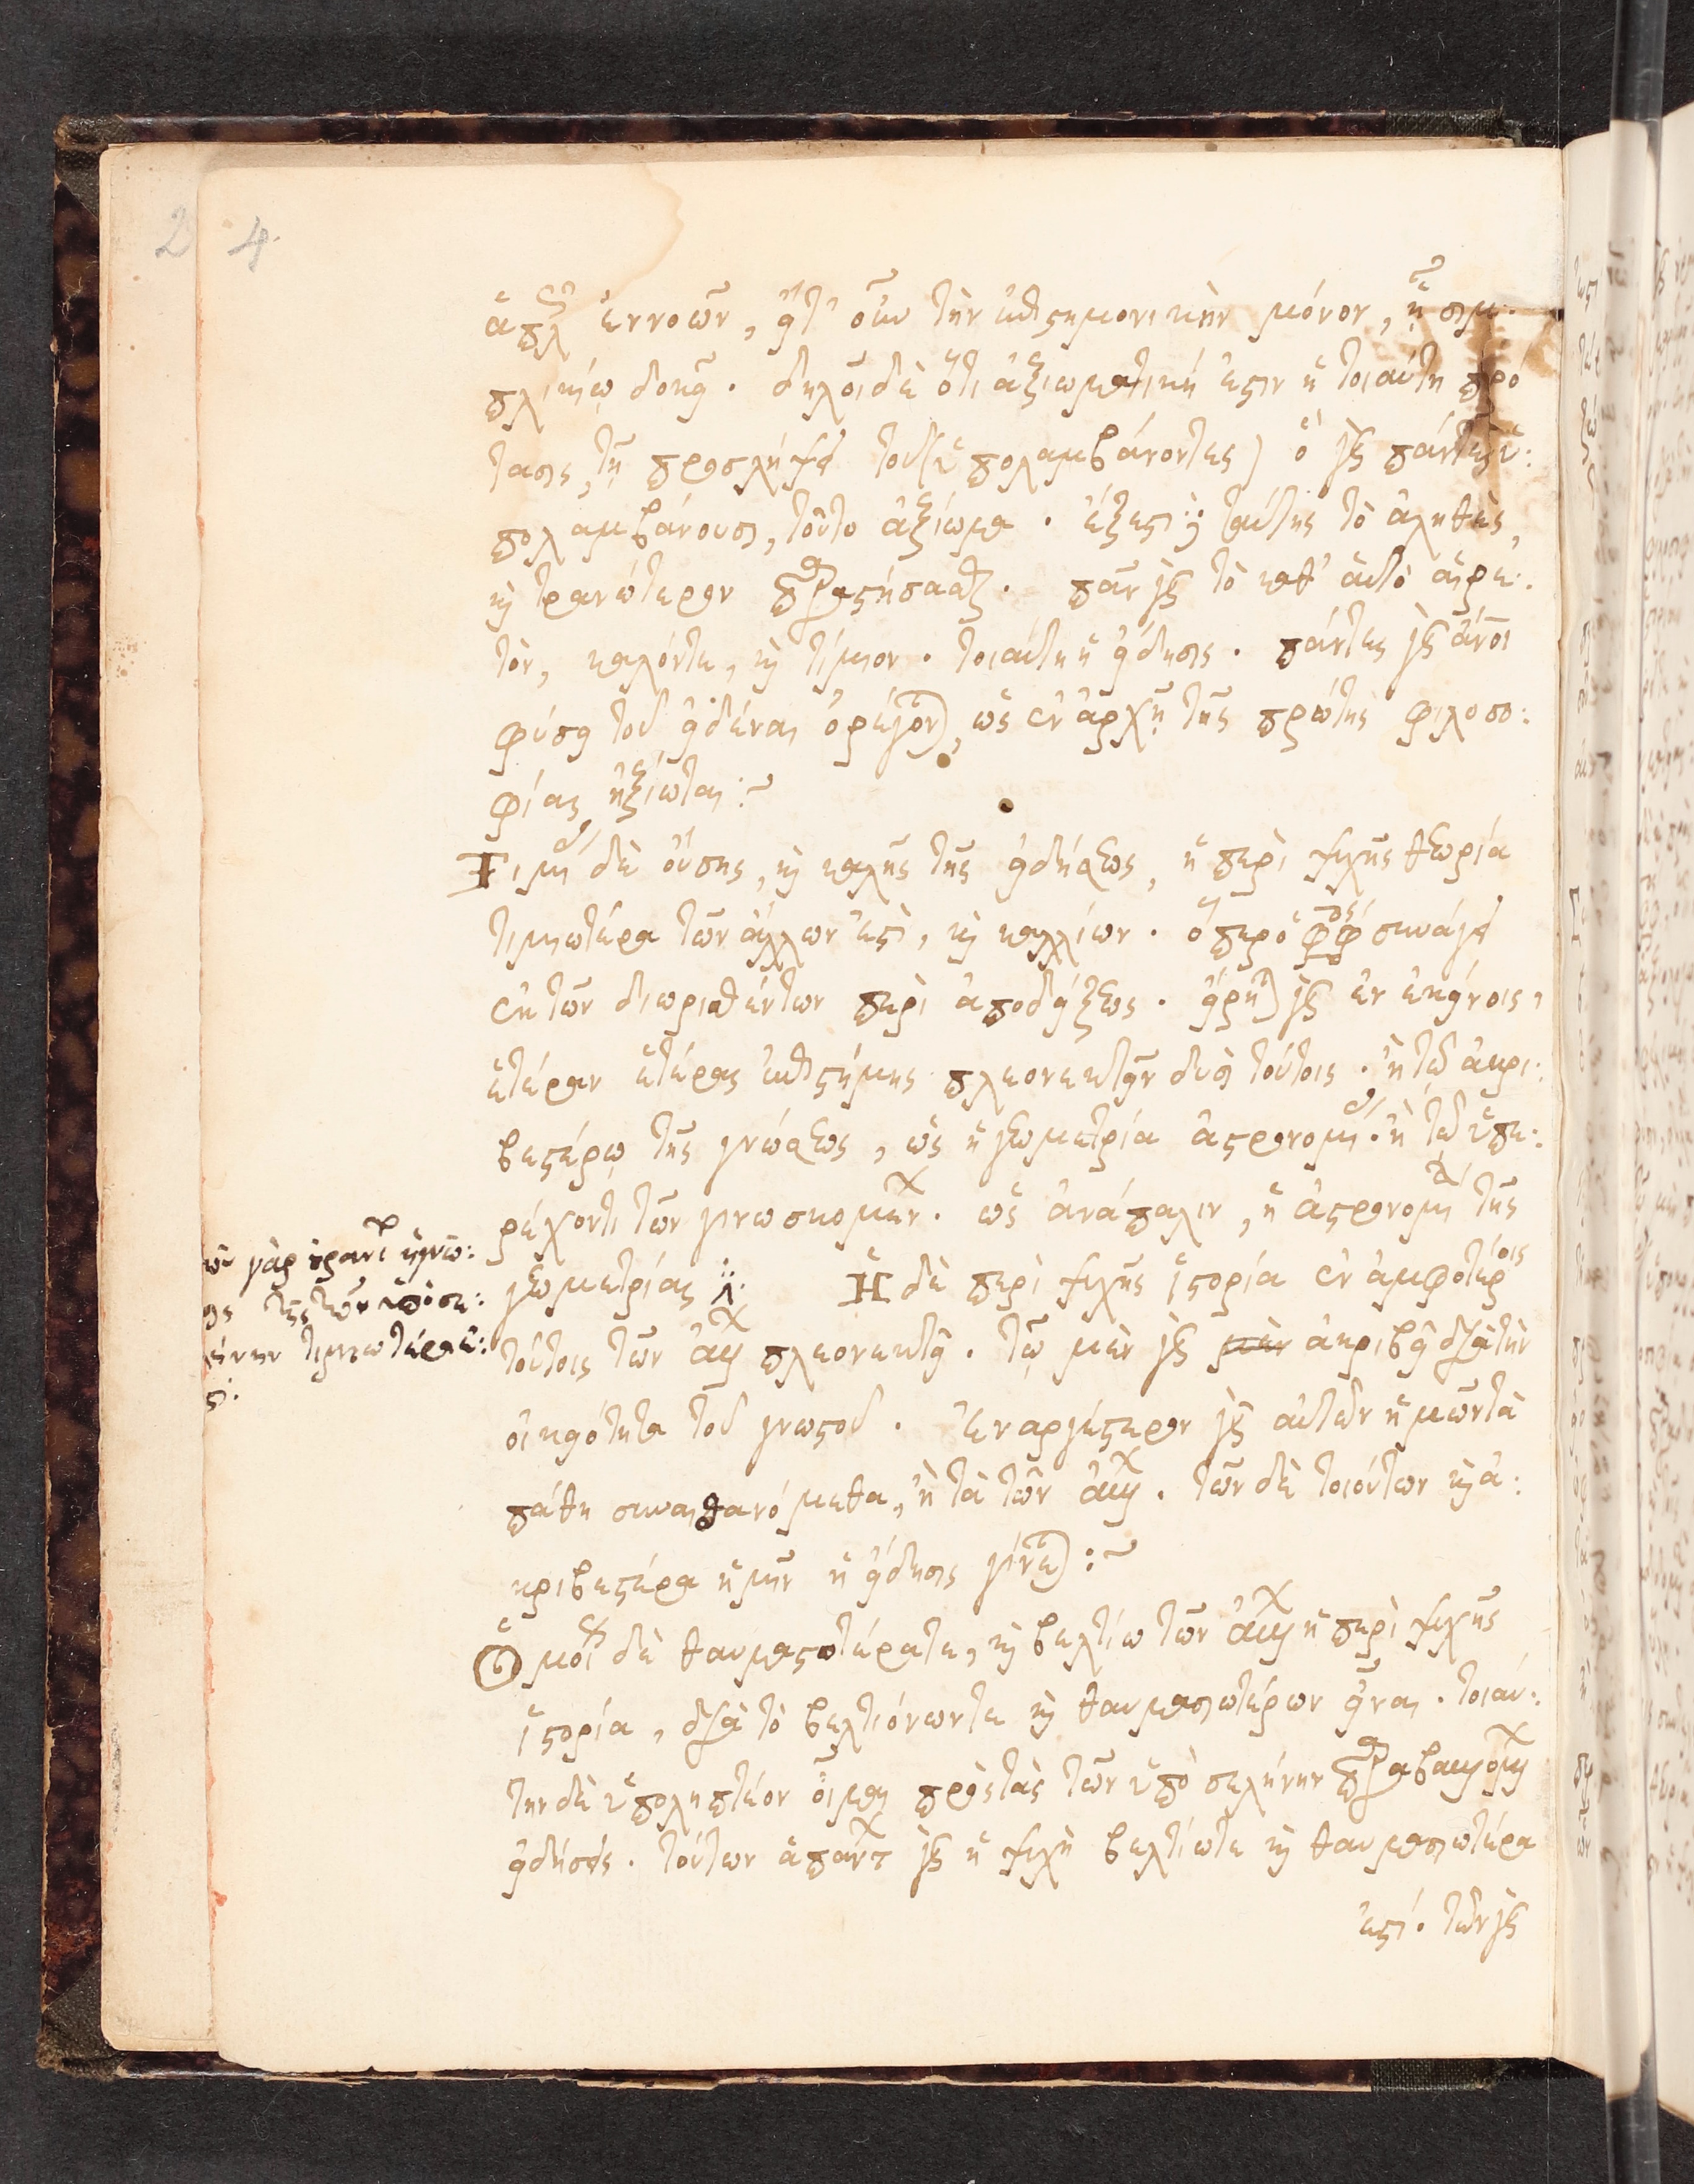 2 4
ἁπλῶς ἐννοῶν, εἴτ' οὖν τὴν ἐπιστημονικὴν μόνον, ᾗ συμ·
πλεκτέω δοκεῖ. δηλοῖ δὲ ὅτι ἀξιωματική ἐστιν ἡ τοιαύτη πρό
τασις, τῇ προσλήψει τοῦ (ὑπολαμβάνοντες) ὃ γὰρ πάντες ὑ:
πολαμβάνουσι, τοῦτο ἀξίωμα. ἔξεστι δὲ ταύτης τὸ ἀληθὲς,
καὶ τρανώτερον παραστήσασθαι. πᾶν γὰρ τὸ καθ' αὑτὸ αἱρε:
τὸν, καλόν τε, καὶ τίμιον. τοιαύτη ἡ εἴδησις. πάντες γὰρ ἄνοι
φύσει τοῦ εἰδέναι ὀρέγονται, ὡς ἐν ἀρχῇ τῆς πρώτης φιλοσο:
φίας ἠξίωται:~
Τιμίας δὲ οὔσης, καὶ καλῆς τῆς εἰδήσεως, ἡ περὶ ψυχῆς θεωρία
τιμιωτέρα τῶν ἄλλων ἐστὶ, καὶ καλλίων. ὅπερ ὁ φφος συνάγει
ἐκ τῶν διωρισθέντων περὶ ἀποδείξεως. εἴρηται γὰρ ἐν ἐκείνοις,
ἑτέραν ἑτέρας ἐπιστήμης πλεονεκτεῖν δυσὶ τούτοις. ἢ τῷ ἀκρι:
βεστέρῳ τῆς γνώσεως, ὡς ἡ γεωμετρία ἀστρονομίας. ἢ τῷ ὑπε:
ρέχοντι τῶν γινωσκομένων. ὡς ἀνάπαλιν, ἡ ἀστρονομία τῆς
γεωμετρίας. Ἡ δὲ περὶ ψυχῆς ἱστορία ἐν ἀμφοτέροις
τούτοις τῶν ἄλλων πλεονεκτεῖ. τῷ μὲν γὰρ μὲν ἀκριβεῖ διὰ τὴν
οἰκειότητα τοῦ γνωστοῦ. Ἐναργέστερον γὰρ αὐτῶν ἡμῶν τὰ
πάθη συναισθανόμεθα, ἢ τὰ τῶν ἄλλων. τῶν δὲ τοιούτων καὶ ἀ:
κριβεστέρα ἡμῖν ἡ εἴδησις γίνεται:~
Ὁμοίως δὲ θαυμαστοτέρα τε, καὶ βελτίω τῶν ἄλλων ἡ περὶ ψυχῆς
ἱστορία, διὰ τὸ βελτιόνων τε καὶ θαυμασιωτέρων εἶναι. τοιαύ:
την δὲ ὑποληπτέον οἶμαι πρὸς τὰς τῶν ὑπὸ σελήνην παραβαλλομένων
εἰδήσεις. τούτων ἁπάντων γὰρ ἡ ψυχὴ βελτίω τε καὶ θαυμασιωτέρα
ἐστί. τῶν γὰρ
γὰρ ἡ γνῶ:
τῆς τῶν ὑπὸ σε:
λήνην τιμιωτέρα ἐ: